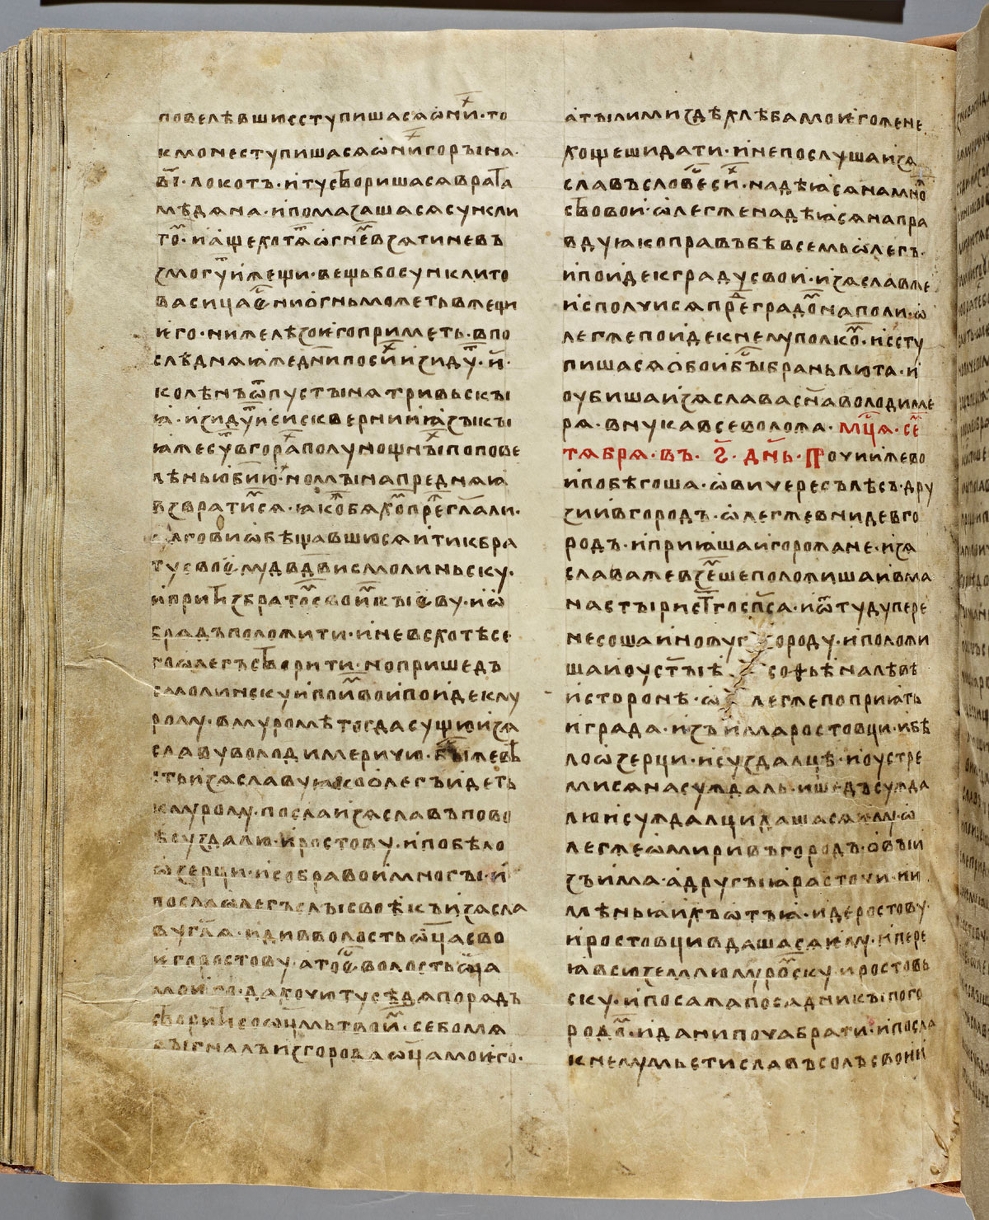 повелѣвшиⷨ сступишасѧ ѡ ниⷯ · то
кмо не ступишасѧ ѡ ниⷯ горы на ·
в҃і · локотъ · и ту створишасѧ врата
мѣдѧна · и помазашасѧ сункли
тоⷨ · и аще хотѧⷮ ѡгнеⷨ взѧти не въ
змогуⷮ и жещи · вещь бо сунклито
ва сица єⷭ ни огнь можеть вжещи
его · ни желѣзо иего приметь · в по
слѣднѧꙗ же дни по сиⷯ изидуⷮ · и҃ ·
колѣнъ ѿ пустынѧ тривьскы
ꙗ · изидуⷮ и си сквернии ꙗзыкы
ꙗже суⷮ в гораⷯ полунощныⷯ по пове
лѣнью бию · но мы на преднѧꙗ
взвратиⷨсѧ · ꙗкоⷤ бѧхоⷨ преⷤ глали ·
ѡлгови ѡбѣщавшюсѧ ити к бра
ту своєⷨму двдви смолиньску ·
и прити з братоⷨ своиⷨ кыєву · и ѡ
брадъ положити · и не всхотѣ се
го ѡлегъ створити · но пришедъ
смолинску и поиⷨ вои поиде к му
рому · в муромѣ тогда сущю изѧ
славу володимеричи · быⷭ же вѣ
сть изѧславу ꙗко ѡлегъ идеть
к мурому · посла изѧславъ по во
ѣ суздалю · и ростову · и по бѣло
ѡзерци · и собра вои многы · и
посла ѡлегъ слы своѣ къ изѧсла
ву гл҃ѧ · иди в волость ѡц҃а сво
ѥго ростову · а то єⷭ волость ѡц҃а
моѥго · да хочю ту сѣдѧ порѧдъ
створити со ѡц҃мь твоиⷨ · се бо мѧ
выгналъ из города ѡц҃а моиего ·
а ты ли ми здѣ хлѣба моиего же не
хощеши дати · и не послуша изѧ
славъ словеⷭ сиⷯ · надѣꙗсѧ на мноⷤ
ство вои · ѡлег же надѣꙗсѧ на пра
вду ꙗко правъ бѣ в семь ѡлегъ ·
и поиде к граду с вои · изѧслав же
исполчисѧ преⷣ градоⷨ на поли · ѡ
лег же поиде к нему полкоⷨ · и ссту
пишасѧ ѡбои быⷭ брань люта · и
оубиша изѧслава сн҃а володиме
рѧ · внука всеволожа · мц҃ѧ · сеⷫ
тѧбрѧ · въ · ѕ҃ · дн҃ь · Прочии же во
и побѣгоша · ѡви чересъ лѣсъ · дру
зии в городъ · ѡлег же вниде в го
родъ · и приꙗша и горожане · изѧ
слава же вземше положиша и в ма
настыри ст҃го сп҃са · и ѿтуду пере
несоша и новугороду · и положи
ша и оу ст҃ыꙗ софьѣ на лѣвѣ
и сторонѣ · ѡлег же по приꙗть
и града · изъима ростовци · и бѣ
лоѡзерци · и суздалцѣ · и оустре
мисѧ на суждаль · и шедъ сужда
лю и сужд҃алци дашасѧ ѥму · ѡ
лег же ѡмиривъ городъ · ѡвы и
зъима · а другыꙗ расточи · и и
мѣньꙗ ихъ ѡтъꙗ · иде ростову ·
и ростовци вдашасѧ ѥму · и пере
ꙗ всю землю муроⷨску · и ростовь
ску · и посажа посадникы по го
родоⷨ · и дани поча брати · и посла
к нему мьстиславъ солъ свои и